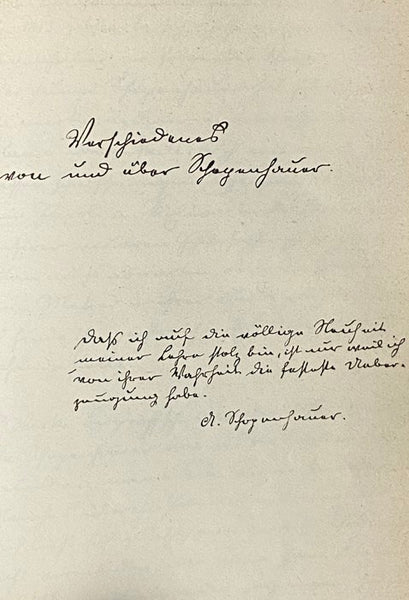 Verschiedenes
von und über Schopenhauer.
Daß ich auf die völlige Neuheit
meiner Lehre stolz bin, ist nur weil ich
von ihrer Wahrheit die festeste Ueber-
zeugung habe.
A. Schopenhauer.